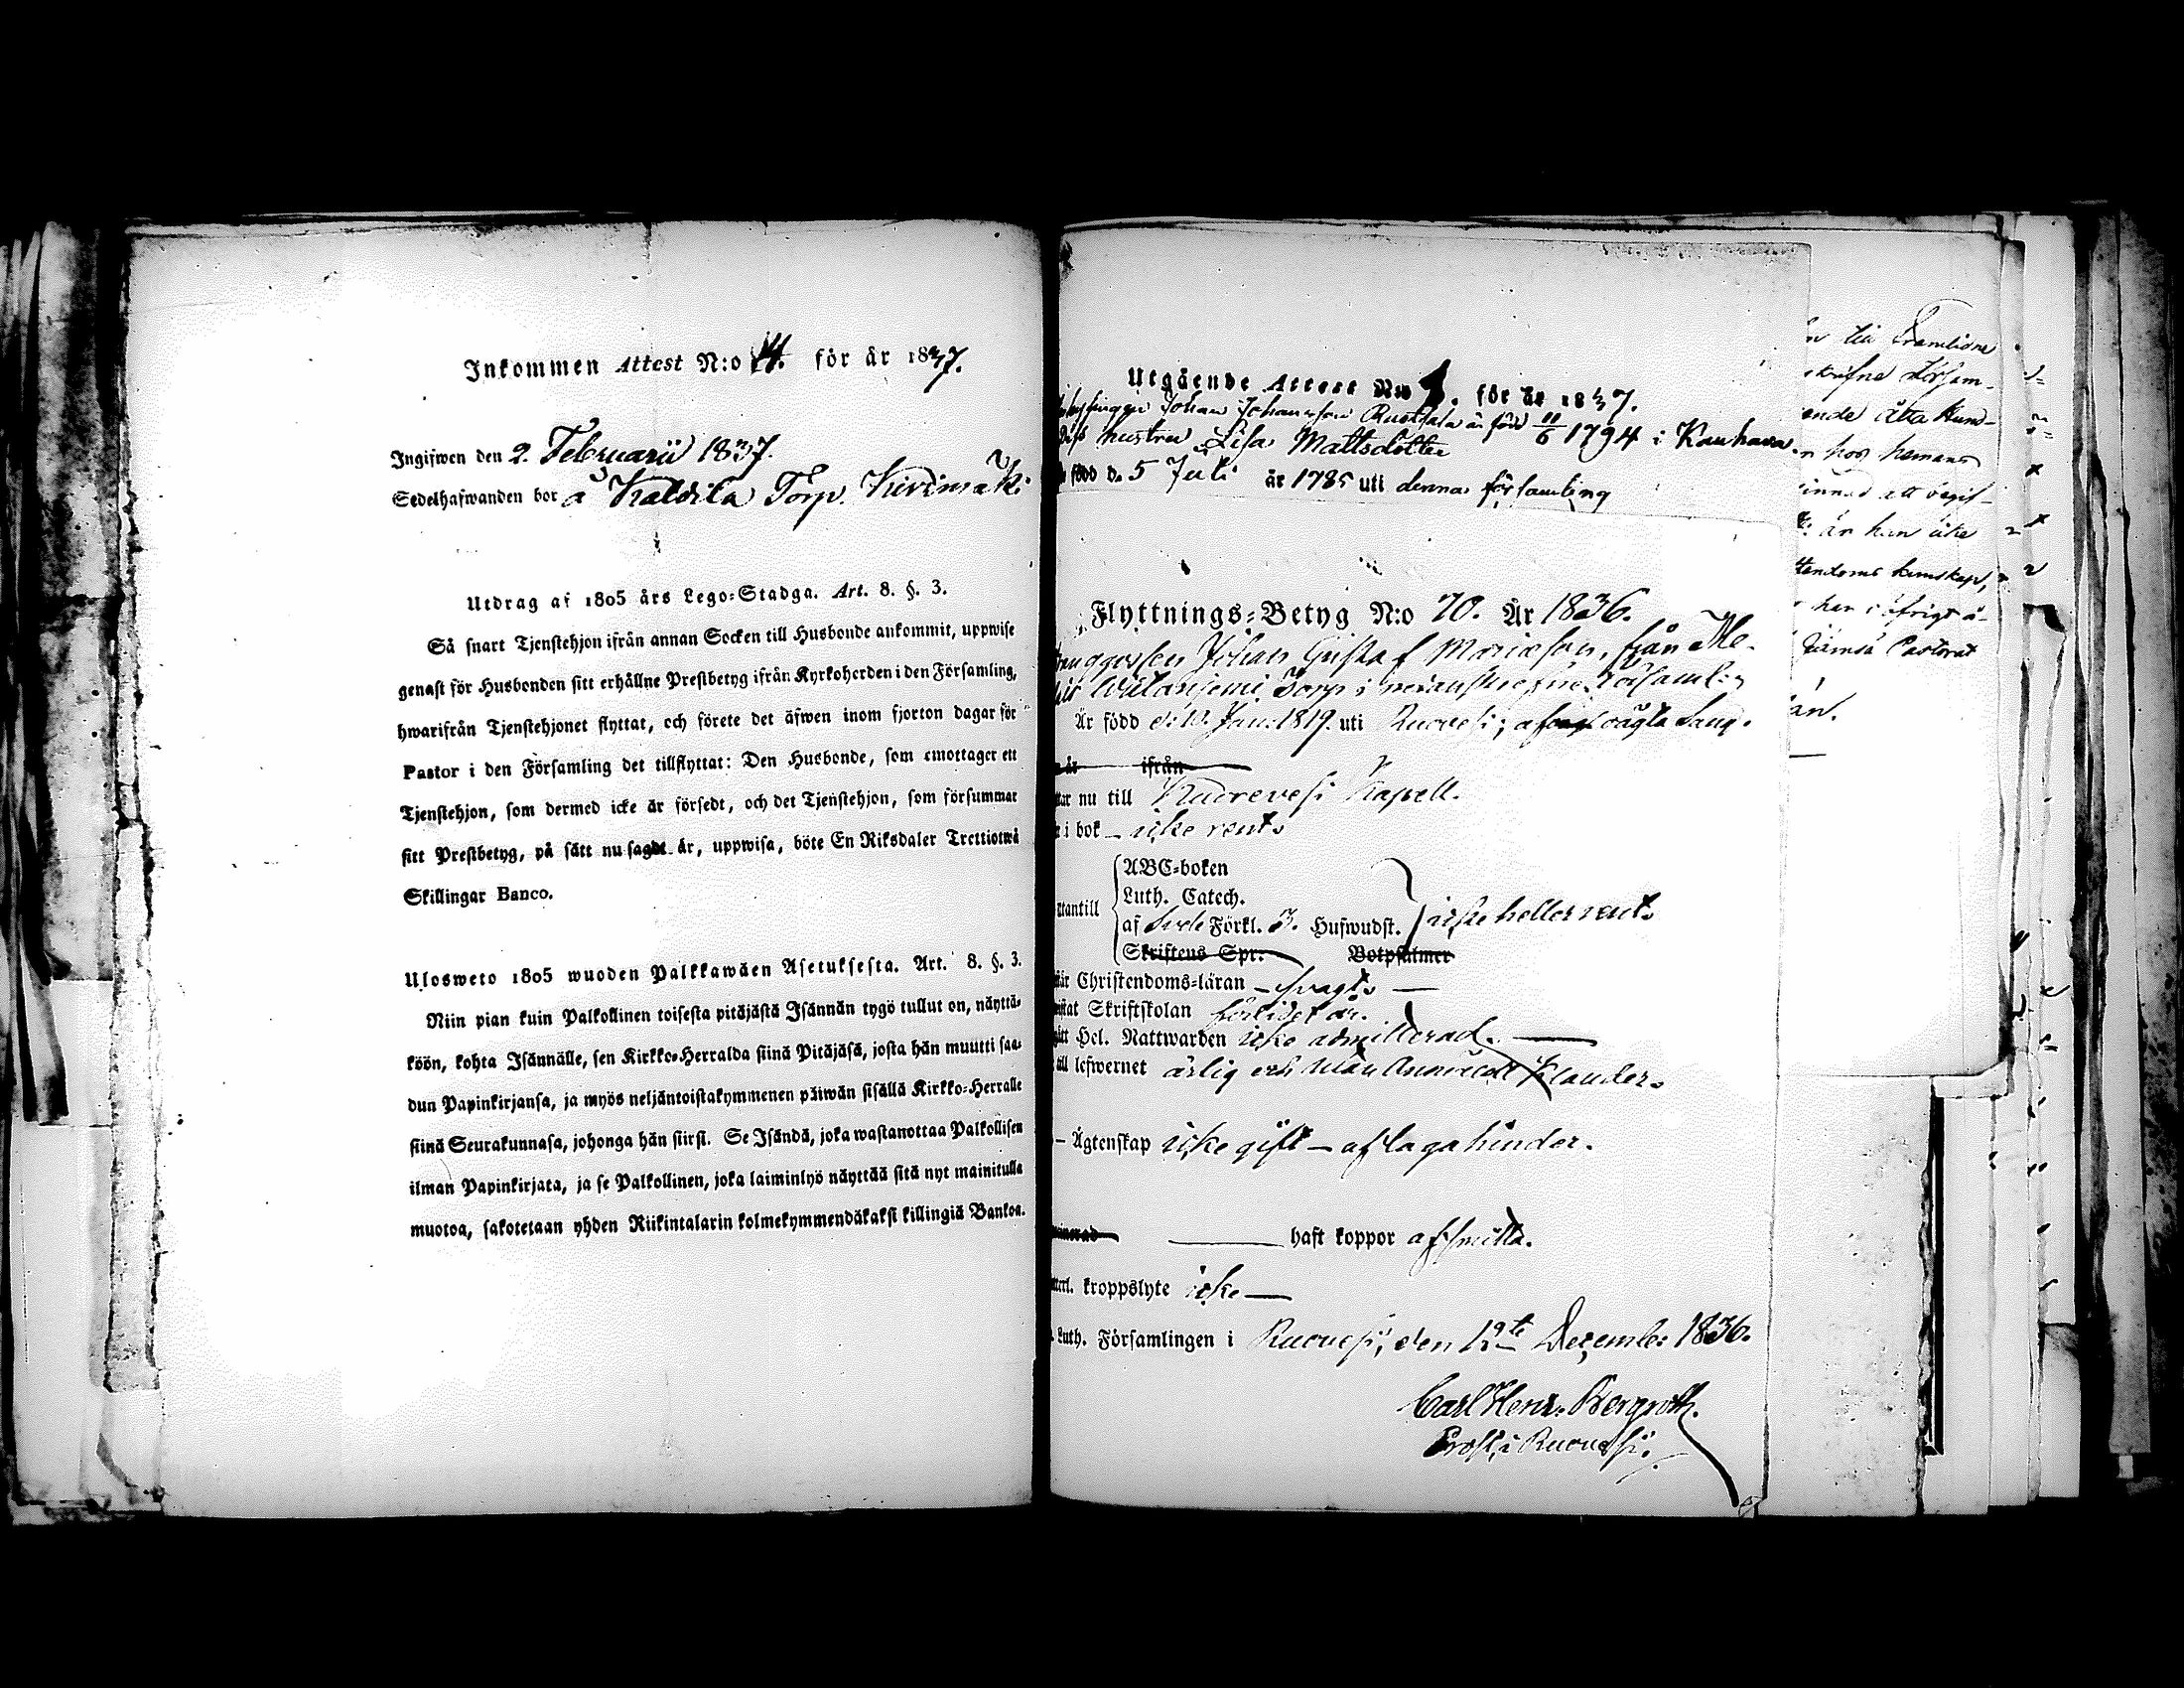 Inkommen Attest N:o 14. för år 1837.
Ingifwen den 2. Februarii 1837.
Sedelhafwanden bor å Kaldila Torp. Kivimäki
Utdrag af 1805 års Lego-Stadga. Art. 8. §. 3.
Så snart Tjenstehjon ifrån annan Socken till Husbonde ankommit, uppwise
genast för Husbonden sitt erhållne Prestbetyg ifrån Kyrkoherden i den Församling,
hwarifrån Tjenstehjonet flyttat, och förete det äfwen inom fjorton dagar för
Pastor i den Församling det tillflyttat: Den Husbonde, som emottager ett
Tjenstehjon, som dermed icke är försedt, och det Tjenstehjon, som försummar
sitt Prestbetyg, på sätt nu sagdt är, uppwisa, böte En Riksdaler Trettiotwå
Skillingar Banco.
Ulosweto 1805 wuoden Palkkawäen Asetuksesta. Art. 8. §. 3.
Niin pian kuin Palkollinen toisesta pitäjästä Isännän tygö tullut on, näyttä-
köön, kohta Isännälle, sen Kirkko-Herralda siinä Pitäjäsä, josta hän muutti saa-
dun Papinkirjansa, ja myös neljäntoistakymmenen päiwän sisällä Kirkko-Herralle
siinä Seurakunnasa, johonga hän siirsi. Se Isändä, joka wastanottaa Palkollisen
ilman Papinkirjata, ja se Palkollinen, joka laiminlyö näyttää sitä nyt mainitulla
muotoa, sakotetaan yhden Riikintalarin kolmekymmendäkaksi killingiä Bankoa.
Utgående Attest N:o 1. för år 1837.
Johan Johansson Rustala är född 11/6 1794 i Kauhava.
Dess hustru Lisa Mattsdotter
född d. 5 Juli år 1785 uti denna församling
Flyttnings-Betyg N:o 70. År 1836.
Johan Gustaf Mariæson, från Me-
Torp i nedanskrefne Församl:g
Är född d: 10. Jan: 1819. uti Ruovesi; af oägta Säng.
är ifrån
nu till Kuorevesi Kapell.
i bok - icke rent.
utantill
ABC-boken
Luth. Catech.
af Sveb Förkl. 3. Hufwudst.
icke heller rent.
Skriftens Spr: Botpsalmer
Christendoms-läran - svagt. -
Skriftskolan förlidet år.
Hel. Nattwarden icke admitterad.
till lefwernet ärlig och utan klander.
- Ägtenskap icke gift - af laga hinder.
haft koppor af smitta.
kroppslyte icke -
Luth. Församlingen i Ruovesi, den 19te December 1836.
Carl Henr. Bergroth.
Prost i Ruovesi.
hos hemans
är han icke
Jämsä Pastorat